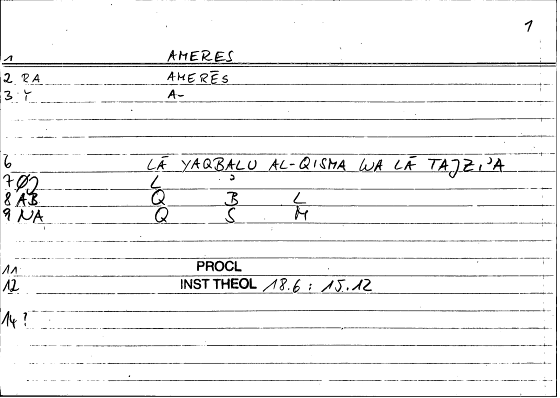 1
1 AMERES
2 RA AMERĒS
3 Y A-
6 LĀ YAQBALU AL-QISMA WA LĀ TAJZI'A
7 ØJ L ʾ
8 AB Q B L
9 NA Q S M
11 PROCL
12 INST THEOL 18.6 : 15.12
14 ?